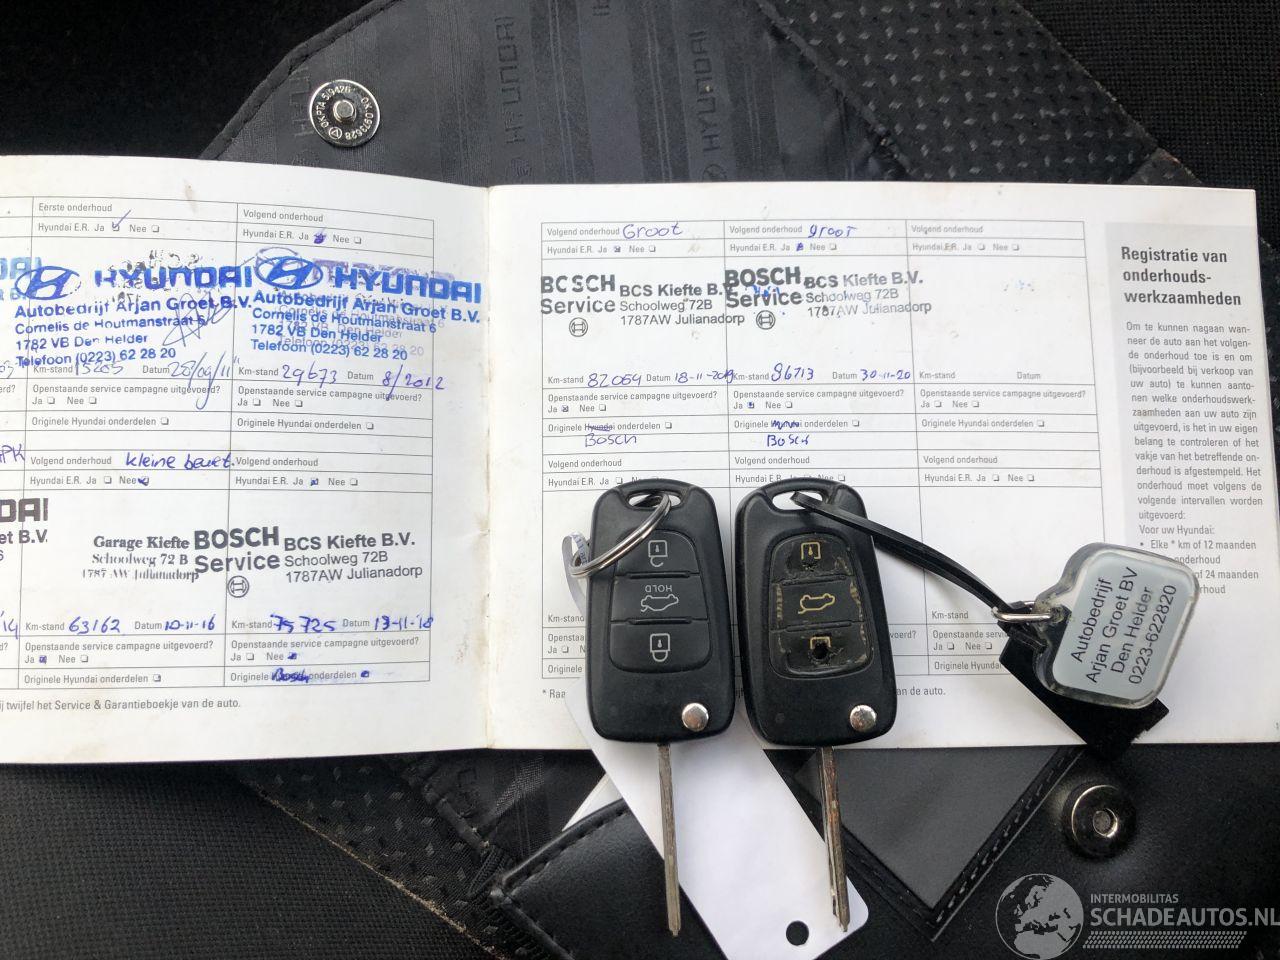 HYUNDAI
HYUNDAI
Eerste onderhoud
Hyundai E.R. Ja Nee
Volgend onderhoud
Hyundai E.R. Ja Nee
HYUNDAI
Autobedrijf Arjan Groet B.V.
Cornelis de Houtmanstraat 6
1782 VB Den Helder
Telefoon (0223) 62 28 20
Km-stand Datum 28/09/11
Openstaande service campagne uitgevoerd?
Ja Nee
Originele Hyundai onderdelen
HYUNDAI
Autobedrijf Arjan Groet B.V.
Cornelis de Houtmanstraat 6
1782 VB Den Helder
Telefoon (0223) 62 28 20
Km-stand 29673 Datum 8/2012
Openstaande service campagne uitgevoerd?
Ja Nee
Originele Hyundai onderdelen
Volgend onderhoud kleine beurt
Hyundai E.R. Ja Nee
Garage Kiefte
Schoolweg 72 B
1787 AW Julianadorp
Km-stand 63162 Datum 10-11-16
Openstaande service campagne uitgevoerd?
Ja Nee
Originele Hyundai onderdelen
Volgend onderhoud
Hyundai E.R. Ja Nee
BOSCH Service
BCS Kiefte B.V.
Schoolweg 72B
1787AW Julianadorp
Km-stand 75725 Datum 13-11-18
Openstaande service campagne uitgevoerd?
Ja Nee
Originele Bosch onderdelen
ij twijfel het Service & Garantieboekje van de auto.
Volgend onderhoud Groot
Hyundai E.R. Ja Nee
BOSCH Service
BCS Kiefte B.V.
Schoolweg 72B
1787AW Julianadorp
Km-stand 82064 Datum 18-11-2019
Openstaande service campagne uitgevoerd?
Ja Nee
Originele Hyundai onderdelen
Bosch
Volgend onderhoud groot
Hyundai E.R. Ja Nee
BOSCH Service
BCS Kiefte B.V.
Schoolweg 72B
1787AW Julianadorp
Km-stand 96713 Datum 30-11-20
Openstaande service campagne uitgevoerd?
Ja Nee
Originele Hyundai onderdelen
Bosch
Volgend onderhoud
Hyundai E.R. Ja Nee
Km-stand Datum
Openstaande service campagne uitgevoerd?
Ja Nee
Originele Hyundai onderdelen
Volgend onderhoud
Hyundai E.R. Ja Nee
Volgend onderhoud
Hyundai E.R. Ja Nee
Volgend onderhoud
Hyundai E.R. Ja Nee
Km-stand
van de auto.
Registratie van
onderhouds-
werkzaamheden
Om te kunnen nagaan wan-
neer de auto aan het volgen-
de onderhoud toe is en om
(bijvoorbeeld bij verkoop van
uw auto) te kunnen aanto-
nen welke onderhoudswerk-
zaamheden aan uw auto zijn
uitgevoerd, is het in uw eigen
belang te controleren of het
vakje van het betreffende on-
derhoud is afgestempeld. Het
onderhoud moet volgens de
volgende intervallen worden
uitgevoerd:
Voor uw Hyundai:
• Elke * km of 12 maanden
onderhoud
of 24 maanden
HOLD
Autobedrijf
Arjan Groet BV
Den Helder
0223-622820
INTERMOBILITAS
SCHADEAUTOS.NL